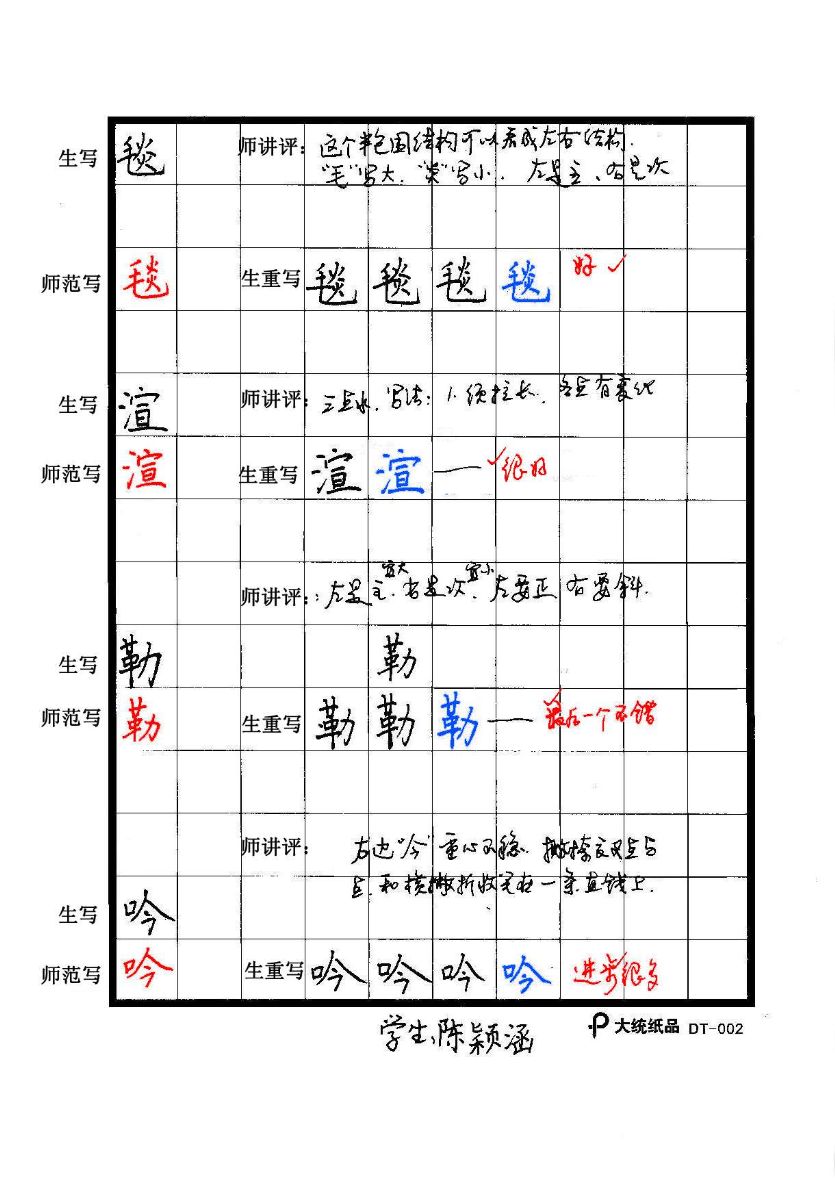 生写 毯 师讲评：这个半包围结构可以看成左右结构.
"毛"写大. "炎"写小. 左是主、右是次
师范写 毯 生重写 毯 毯 毯 毯 好 ✓
生写 渲 师讲评：三点水. 写法: 1. 须拉长. 各点有变化
师范写 渲 生重写 渲 渲 — ✓很好
写大 写小
师讲评：: 左是主. 右是次. 左要正 右要斜.
生写 勒 勒
师范写 勒 生重写 勒 勒 勒 — 最后一个不错
师讲评： 右边"今"重心不稳. 撇捺交叉点与
点. 和横撇折收尾在一条直线上.
生写 吟
师范写 吟 生重写 吟 吟 吟 吟 进步很多
学生、陈颖涵 大统纸品 DT-002